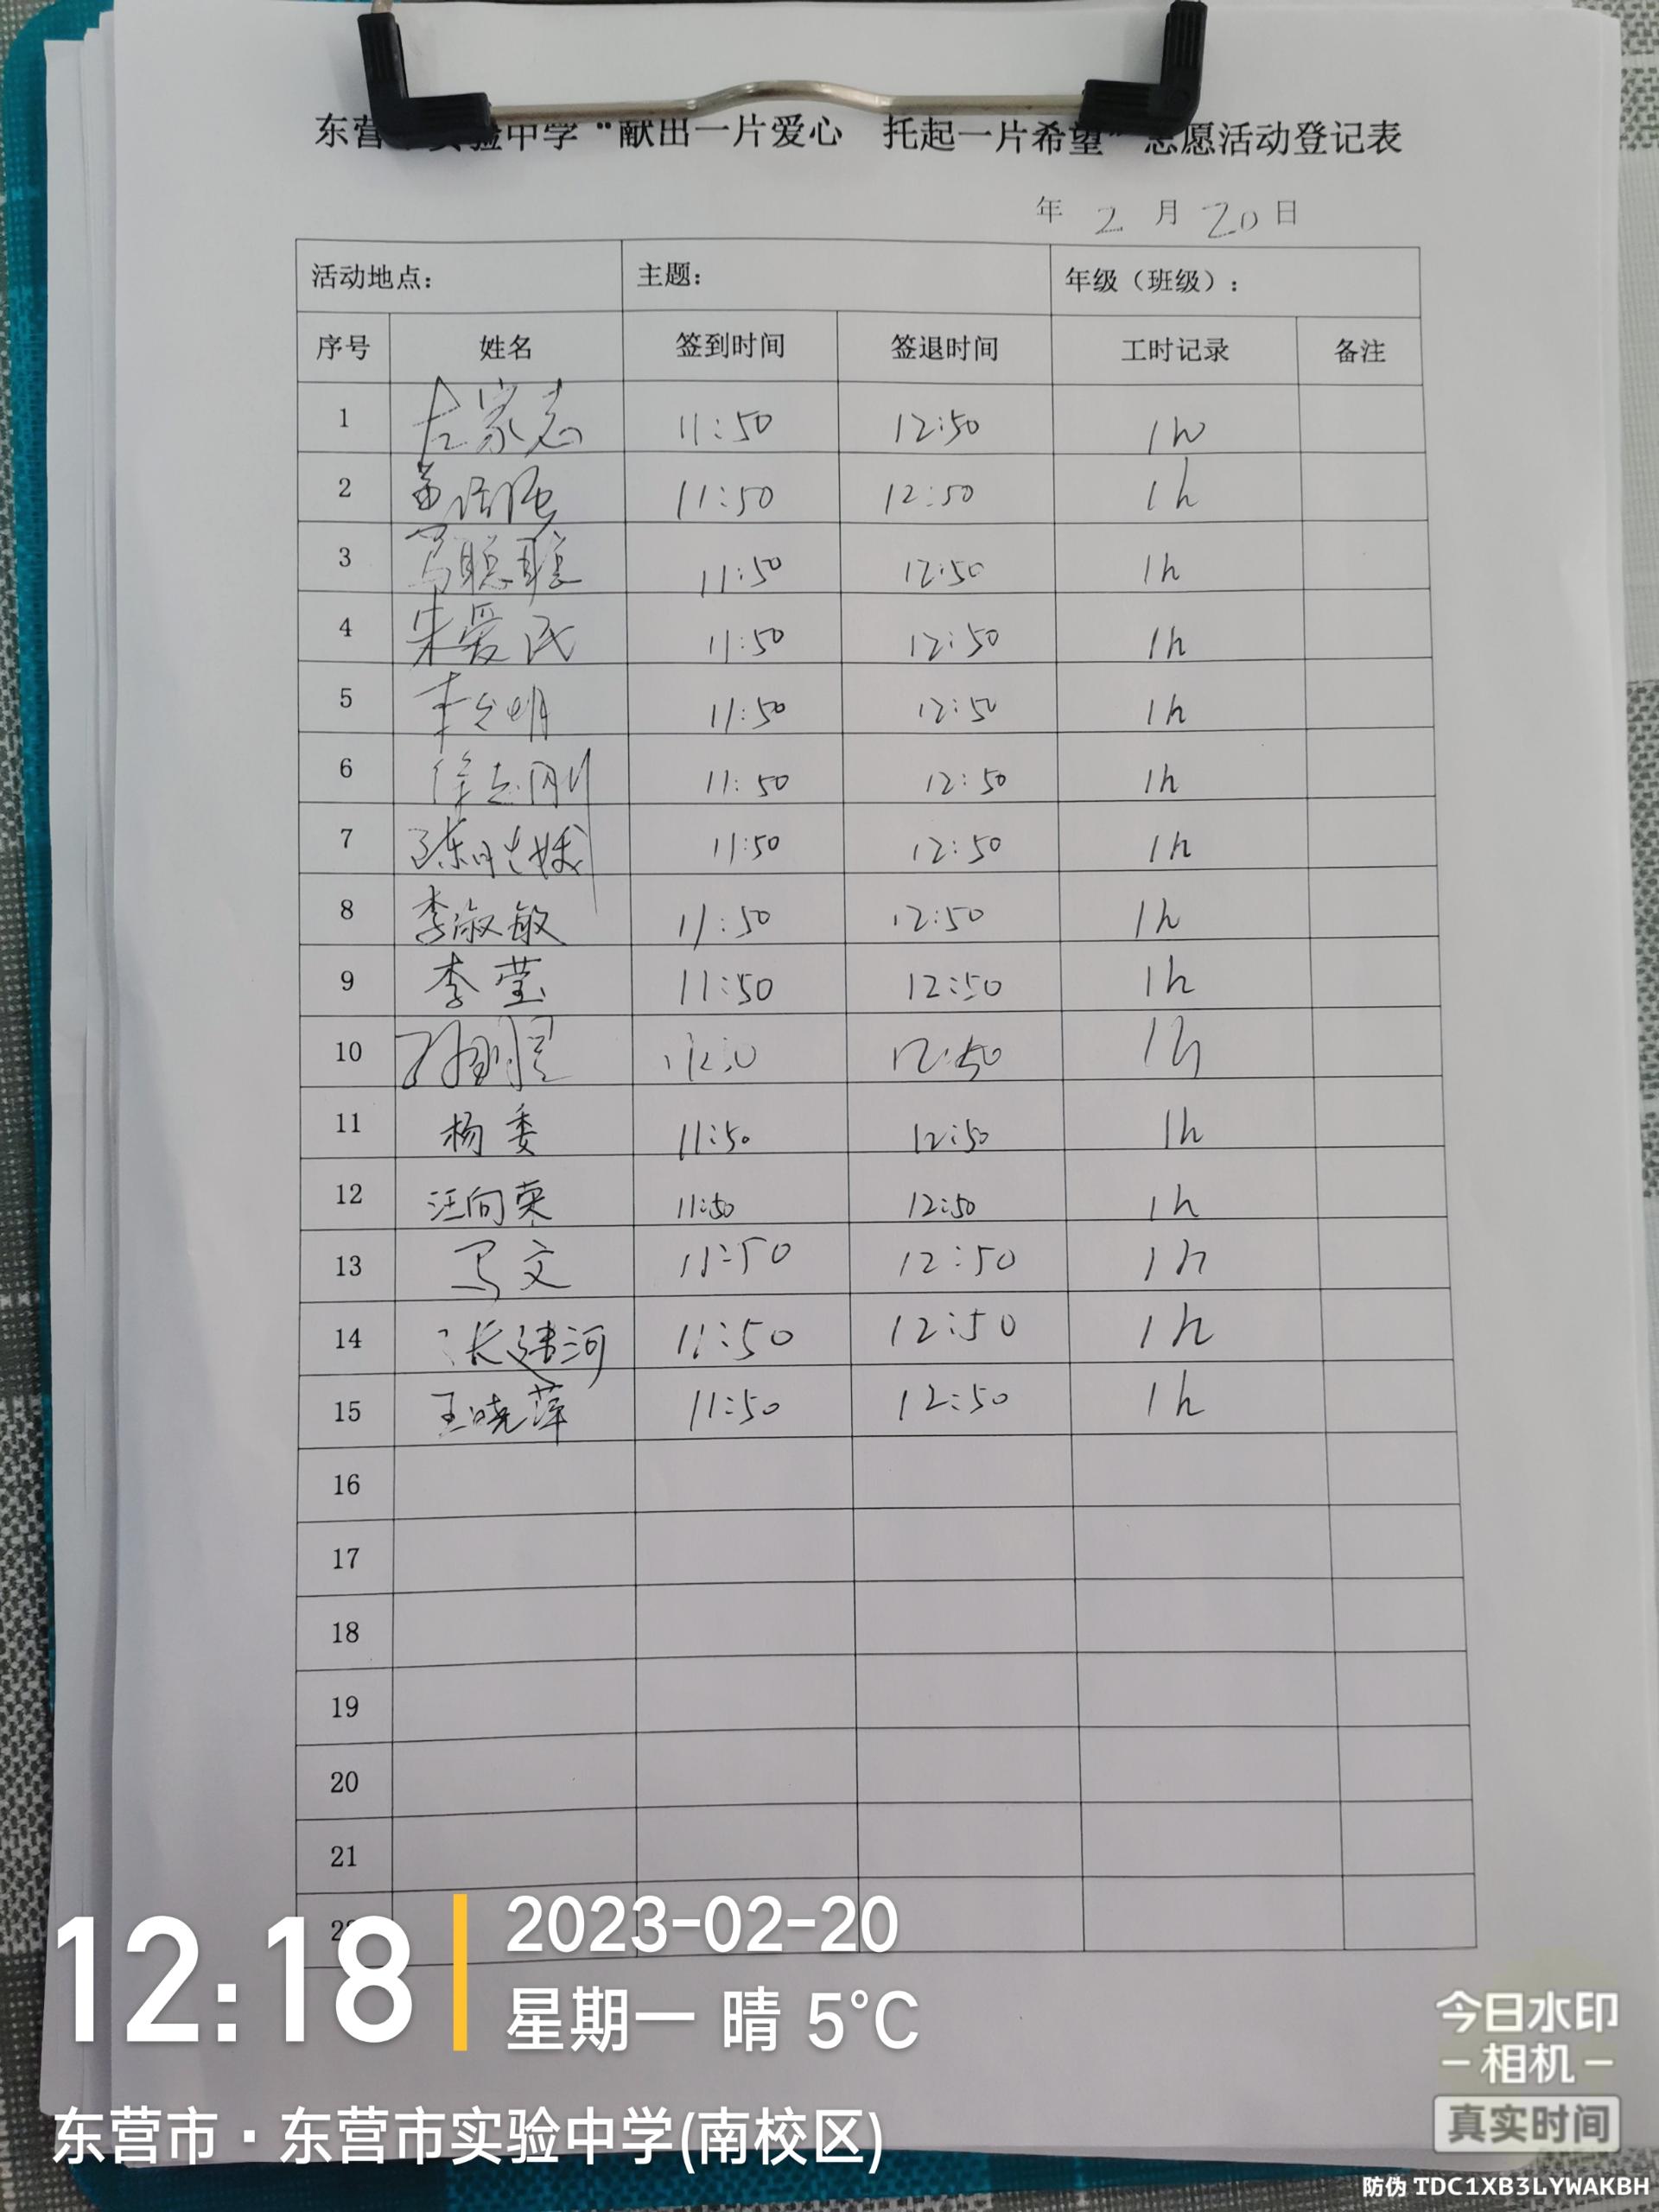 东营市实验中学“献出一片爱心 托起一片希望”志愿活动登记表
年 2 月 20 日
活动地点： 主题： 年级（班级）：
序号 姓名 签到时间 签退时间 工时记录 备注
1 左家志 11:50 12:50 1h
2 11:50 12:50 1h
3 马聪聪 11:50 12:50 1h
4 朱爱民 11:50 12:50 1h
5 11:50 12:50 1h
6 徐志刚 11:50 12:50 1h
7 陈 11:50 12:50 1h
8 李淑敏 11:50 12:50 1h
9 李莹 11:50 12:50 1h
10 12:50 1h
11 杨委 11:50 12:50 1h
12 汪向荣 11:50 12:50 1h
13 马文 11:50 12:50 1h
14 张建河 11:50 12:50 1h
15 王晓萍 11:50 12:50 1h
16
17
18
19
20
21
12:18
2023-02-20
星期一 晴 5°C
东营市·东营市实验中学(南校区)
今日水印
相机
真实时间
防伪 TDC1XB3LYWAKBH